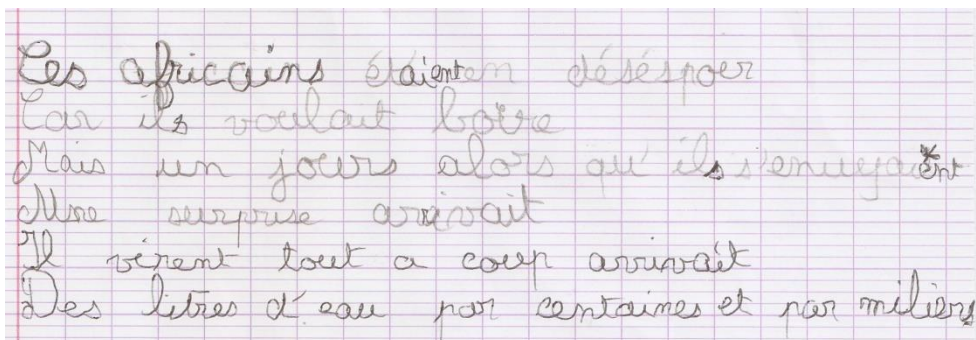 Les africains étaient en déséspoir
Car ils voulait boire
Mais un jours alors qu'ils s'enuyaient
Une surprise arrivait
Il virent tout a coup arrivait
Des litres d'eau par centaines et par miliers